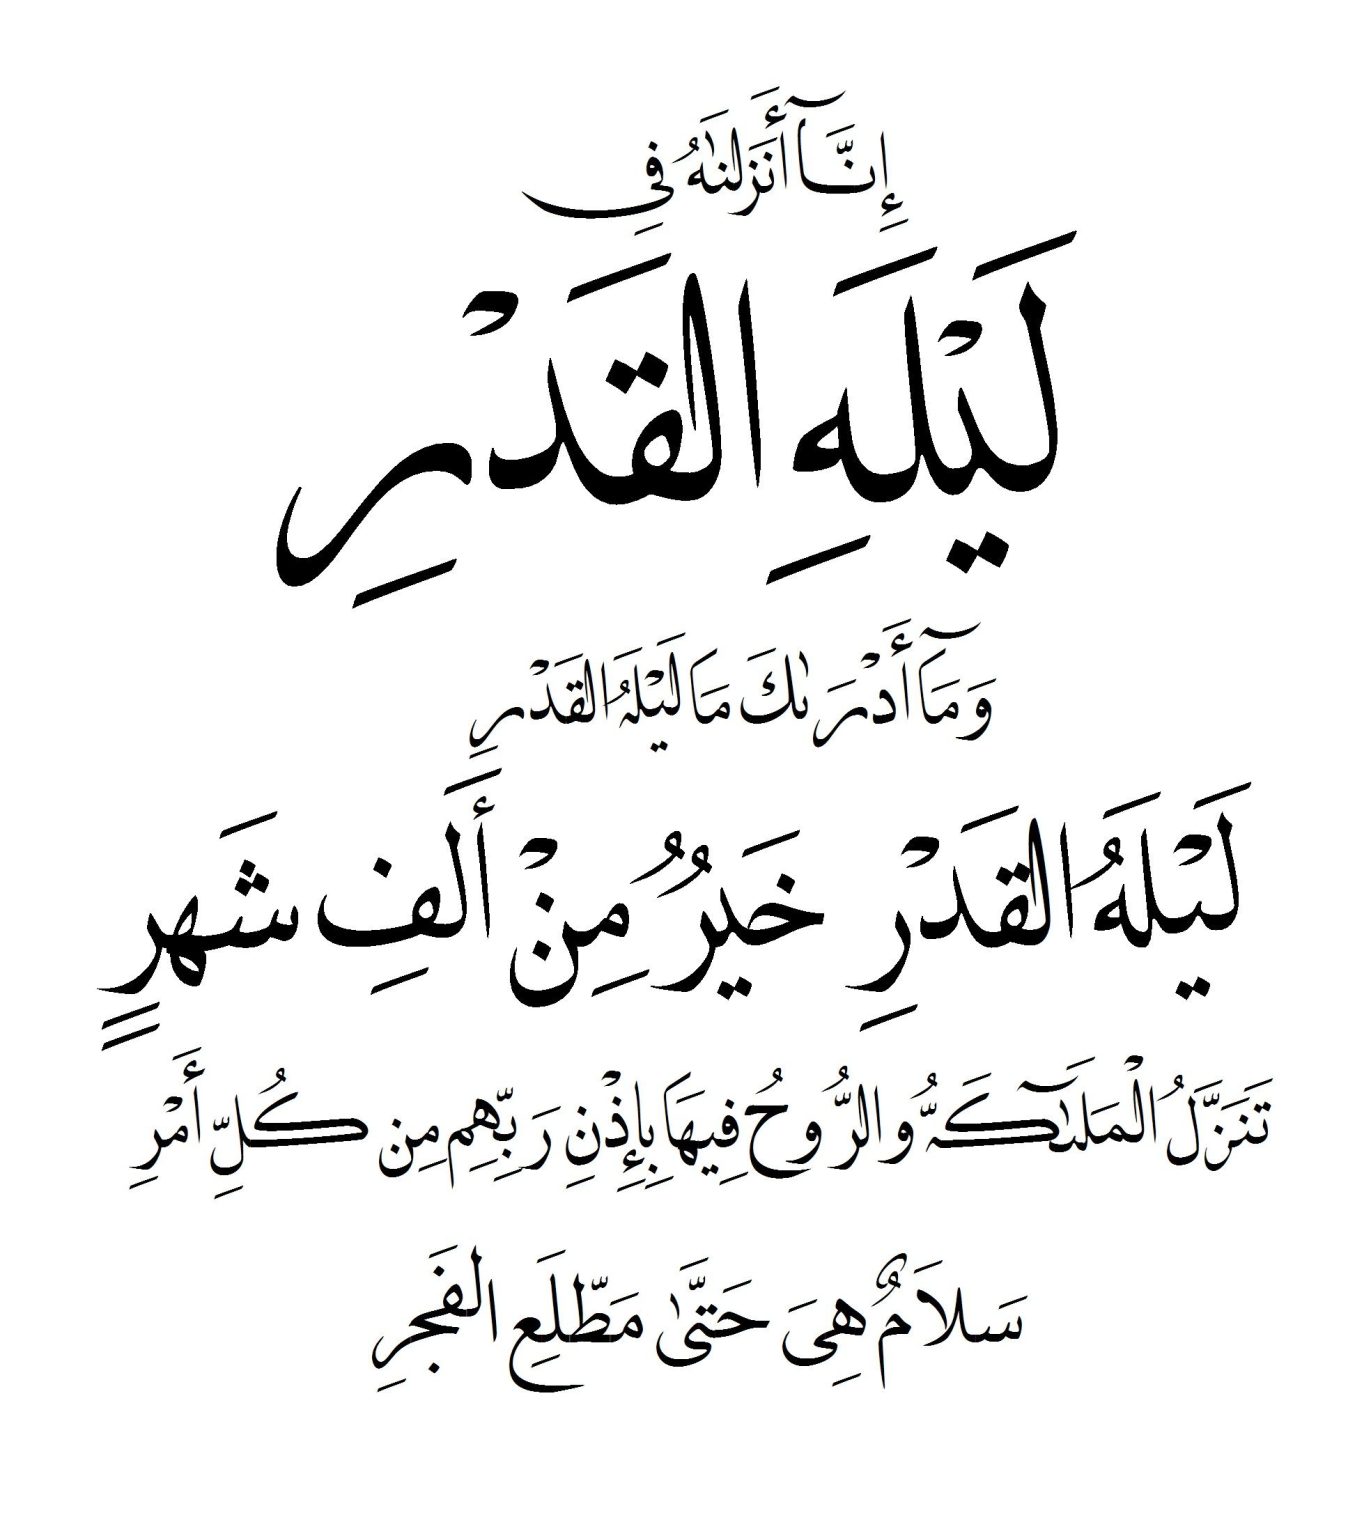 إِنَّآ أَنَزَلنَٰهُ فِي
لَيْلَهِ القَدْرِ
وَمَآ أَدْرَىٰكَ مَا لَيْلَهُ القَدْرِ
لَيْلَهُ القَدْرِ خَيْرٌ مِنْ أَلَفِ شَهرٍ
تَنَزَّلُ الْمَلَٰٓئكَهُّ والرُّوحُ فِيهَا بِإِذْنِ رَبِّهِم مِن كُلِّ أَمْرِ
سَلاَمٌ هِىَ حَتَّىٰ مَطّلَعِ الفَجرِ